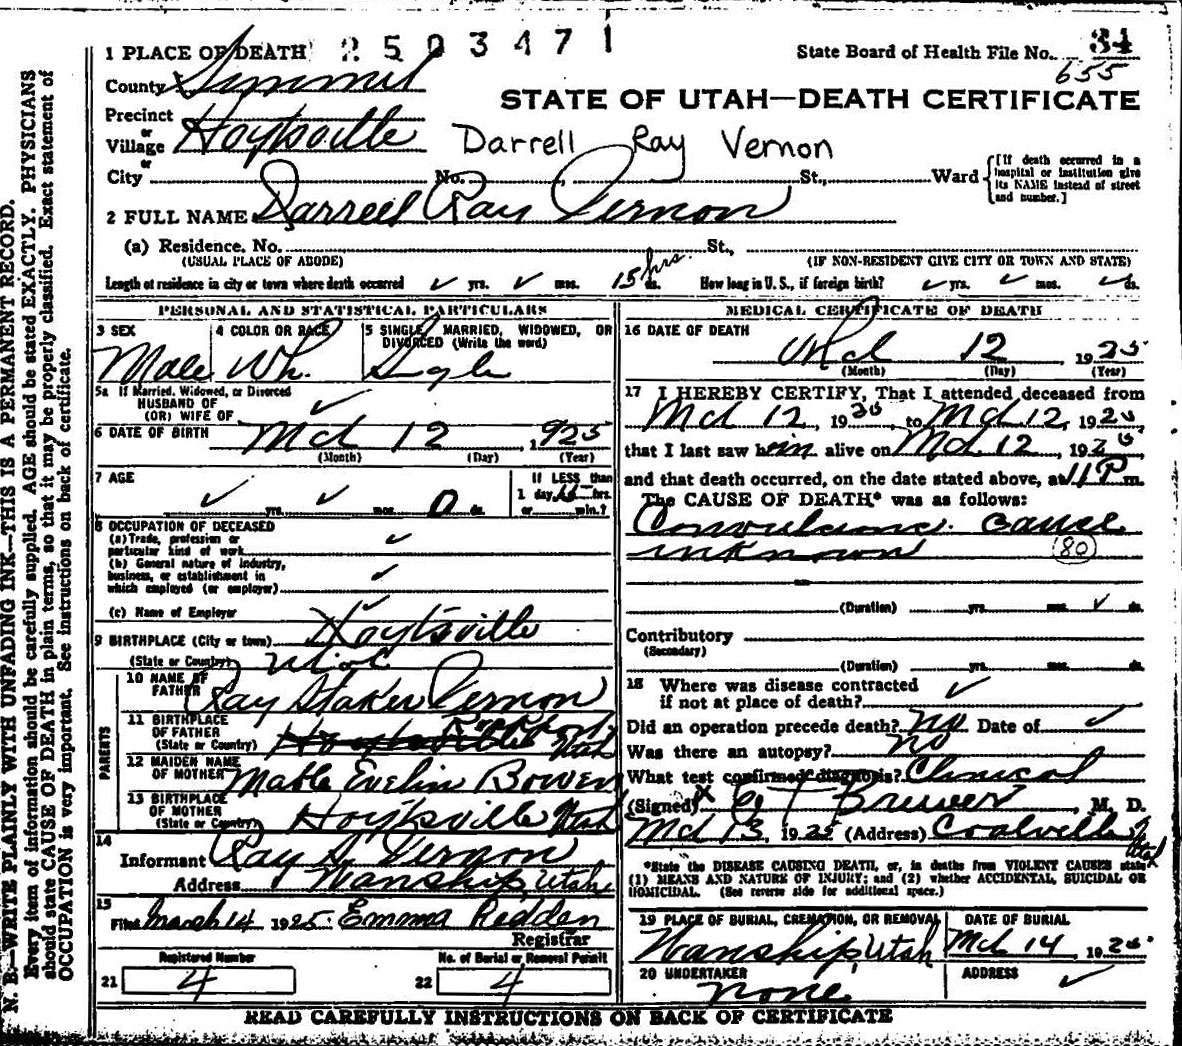 1 PLACE OF DEATH 2503471
State Board of Health File No. 34
655
County Summit
STATE OF UTAH—DEATH CERTIFICATE
Precinct
or
Village Hoytsville
Darrell Ray Vernon
or
City No. , St., Ward
[If death occurred in a hospital or institution give its NAME instead of street and number.]
2 FULL NAME Darrell Ray Vernon
(a) Residence. No. St.,
(USUAL PLACE OF ABODE) (IF NON-RESIDENT GIVE CITY OR TOWN AND STATE)
Length of residence in city or town where death occurred ✓ yrs. ✓ mos. 15 hrs. ds. How long in U. S., if foreign birth? ✓ yrs. ✓ mos. ✓ ds.
PERSONAL AND STATISTICAL PARTICULARS
3 SEX 4 COLOR OR RACE 5 SINGLE, MARRIED, WIDOWED, OR DIVORCED (Write the word)
Male Wh. Single
5a If Married, Widowed, or Divorced
HUSBAND OF
(OR) WIFE OF ✓
6 DATE OF BIRTH Mch 12, 1925
(Month) (Day) (Year)
7 AGE
✓ yrs. ✓ mos. 0 ds.
If LESS than
1 day, 15 hrs.
or min.?
8 OCCUPATION OF DECEASED
(a) Trade, profession or
particular kind of work ✓
(b) General nature of industry,
business, or establishment in
which employed (or employer) ✓
(c) Name of Employer ✓
9 BIRTHPLACE (City or town) Hoytsville
(State or Country) Utah
PARENTS
10 NAME OF
FATHER Ray Staker Vernon
11 BIRTHPLACE
OF FATHER
(State or Country) Hoytsville Rockport Utah
12 MAIDEN NAME
OF MOTHER Mable Evelin Bowen
13 BIRTHPLACE
OF MOTHER
(State or Country) Hoytsville Utah
14
Informant Ray S. Vernon
Address Wanship, Utah
15
Filed March 14 1925 Emma Redden
Registrar
Registered Number No. of Burial or Removal Permit
21 4 22 4
MEDICAL CERTIFICATE OF DEATH
16 DATE OF DEATH
Mch 12 1925
(Month) (Day) (Year)
17 I HEREBY CERTIFY, That I attended deceased from
Mch 12, 1925, to Mch 12, 1925
that I last saw him alive on Mch 12, 1925
and that death occurred, on the date stated above, at 11 P m.
The CAUSE OF DEATH* was as follows:
Convulsions. cause
unknown (80)
(Duration) yrs. mos. ✓ ds.
Contributory
(Secondary)
(Duration) yrs. mos. ds.
18 Where was disease contracted
if not at place of death? ✓
Did an operation precede death? no Date of ✓
Was there an autopsy? no
What test confirmed diagnosis? Clinical
(Signed) Brewer, M. D.
Mch 13, 1925 (Address) Coalville Utah
*State the DISEASE CAUSING DEATH, or, in deaths from VIOLENT CAUSES state
(1) MEANS AND NATURE OF INJURY; and (2) whether ACCIDENTAL, SUICIDAL OR
HOMICIDAL. (See reverse side for additional space.)
19 PLACE OF BURIAL, CREMATION, OR REMOVAL DATE OF BURIAL
Wanship, Utah Mch 14 1925
20 UNDERTAKER ADDRESS
none ✓
READ CAREFULLY INSTRUCTIONS ON BACK OF CERTIFICATE
N. B.—WRITE PLAINLY WITH UNFADING INK—THIS IS A PERMANENT RECORD.
Every item of information should be carefully supplied. AGE should be stated EXACTLY. PHYSICIANS
should state CAUSE OF DEATH in plain terms, so that it may be properly classified. Exact statement of
OCCUPATION is very important. See instructions on back of certificate.